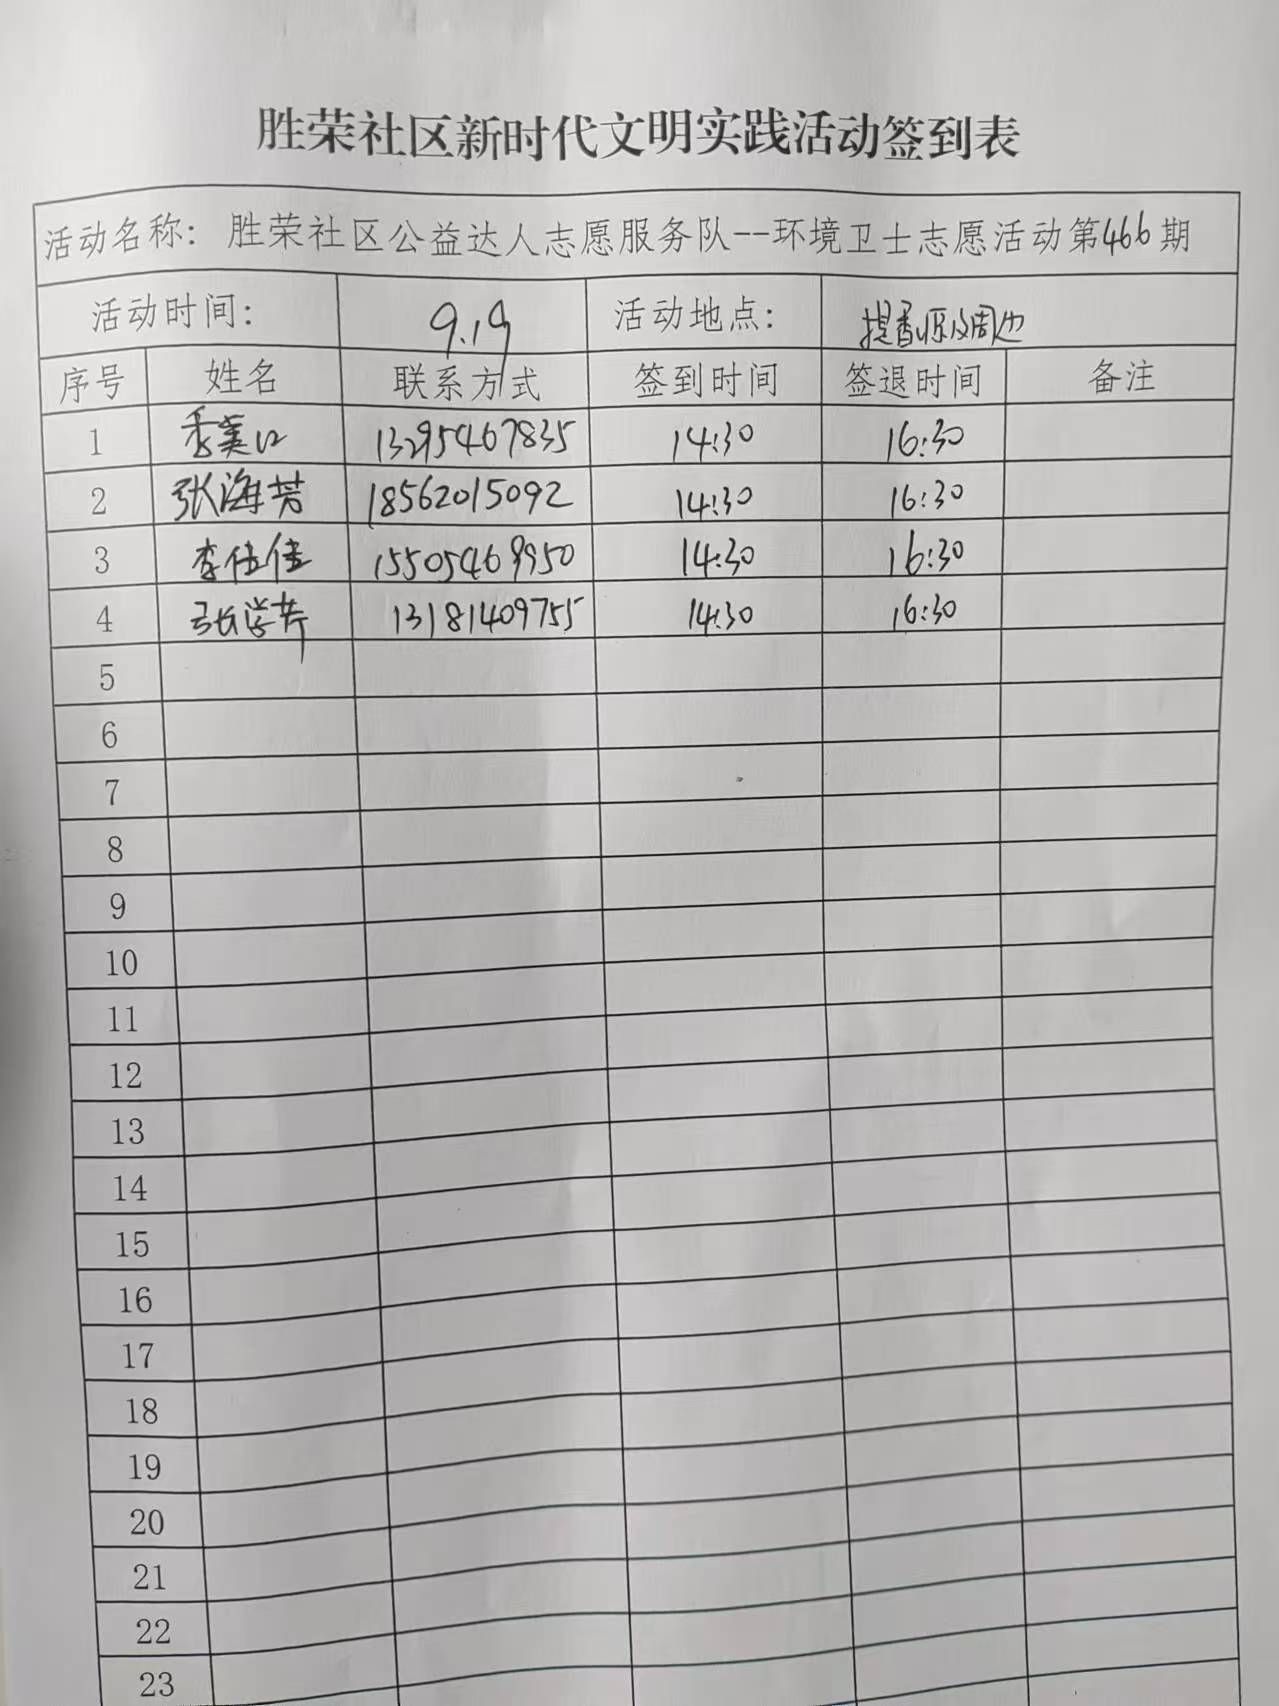 胜荣社区新时代文明实践活动签到表
活动名称：胜荣社区公益达人志愿服务队--环境卫士志愿活动第466期
活动时间： 9.19 活动地点： 提香源及周边
序号 姓名 联系方式 签到时间 签退时间 备注
1 13295467835 14:30 16:30
2 张海芳 18562015092 14:30 16:30
3 李佳佳 15505469950 14:30 16:30
4 张学芹 13181409755 14:30 16:30
5
6
7
8
9
10
11
12
13
14
15
16
17
18
19
20
21
22
23